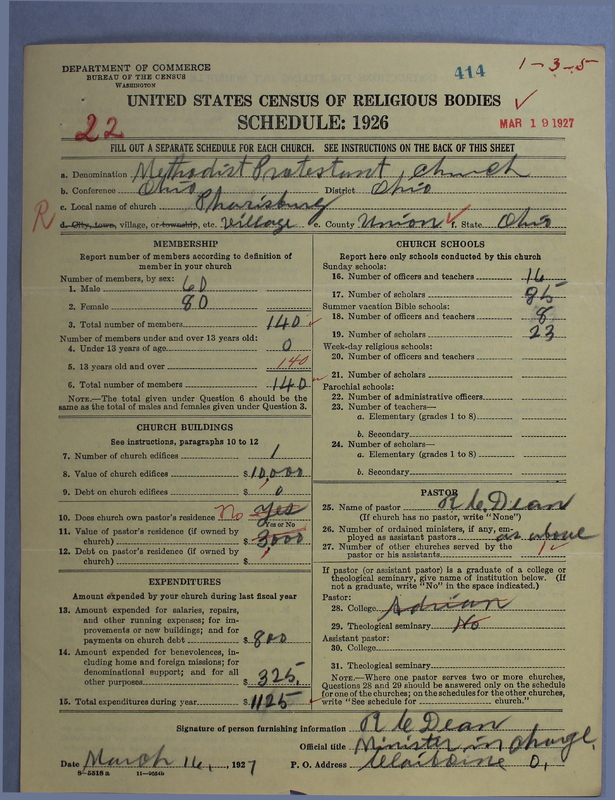 DEPARTMENT OF COMMERCE
BUREAU OF THE CENSUS
WASHINGTON
414
1-3-5
UNITED STATES CENSUS OF RELIGIOUS BODIES
SCHEDULE: 1926
22
MAR 19 1927
FILL OUT A SEPARATE SCHEDULE FOR EACH CHURCH. SEE INSTRUCTIONS ON THE BACK OF THIS SHEET
a. Denomination Methodist Protestant Church
b. Conference Ohio District Ohio
c. Local name of church Pharisburg
R d. City, town, village, or township, etc. Village e. County Union f. State Ohio
MEMBERSHIP
Report number of members according to definition of
member in your church
Number of members, by sex:
1. Male 60
2. Female 80
3. Total number of members 140
Number of members under and over 13 years old:
4. Under 13 years of age 0
5. 13 years old and over 140
6. Total number of members 140
NOTE.—The total given under Question 6 should be the
same as the total of males and females given under Question 3.
CHURCH BUILDINGS
See instructions, paragraphs 10 to 12
7. Number of church edifices 1
8. Value of church edifices $10,000
9. Debt on church edifices $ 0
10. Does church own pastor's residence No Yes
Yes or No
11. Value of pastor's residence (if owned by
church) $ 3000
12. Debt on pastor's residence (if owned by
church) $
EXPENDITURES
Amount expended by your church during last fiscal year
13. Amount expended for salaries, repairs,
and other running expenses; for im-
provements or new buildings; and for
payments on church debt $ 800
14. Amount expended for benevolences, in-
cluding home and foreign missions; for
denominational support; and for all
other purposes $ 325.
15. Total expenditures during year $ 1125
CHURCH SCHOOLS
Report here only schools conducted by this church
Sunday schools:
16. Number of officers and teachers 16
17. Number of scholars 85
Summer vacation Bible schools:
18. Number of officers and teachers 8
19. Number of scholars 23
Week-day religious schools:
20. Number of officers and teachers
21. Number of scholars
Parochial schools:
22. Number of administrative officers
23. Number of teachers—
a. Elementary (grades 1 to 8)
b. Secondary
24. Number of scholars—
a. Elementary (grades 1 to 8)
b. Secondary
PASTOR
25. Name of pastor R C Dean
(If church has no pastor, write "None")
26. Number of ordained ministers, if any, em-
ployed as assistant pastors as above
27. Number of other churches served by the
pastor or his assistants
If pastor (or assistant pastor) is a graduate of a college or
theological seminary, give name of institution below. (If
not a graduate, write "No" in the space indicated.)
Pastor:
28. College Adrian
29. Theological seminary No
Assistant pastor:
30. College
31. Theological seminary
NOTE.—Where one pastor serves two or more churches,
Questions 28 and 29 should be answered only on the schedule
for one of the churches; on the schedules for the other churches,
write "See schedule for church."
Signature of person furnishing information R C Dean
Official title Minister in Charge.
Date March 16, 1927 P. O. Address Claibourne O.
8-5518 a 11-9054b